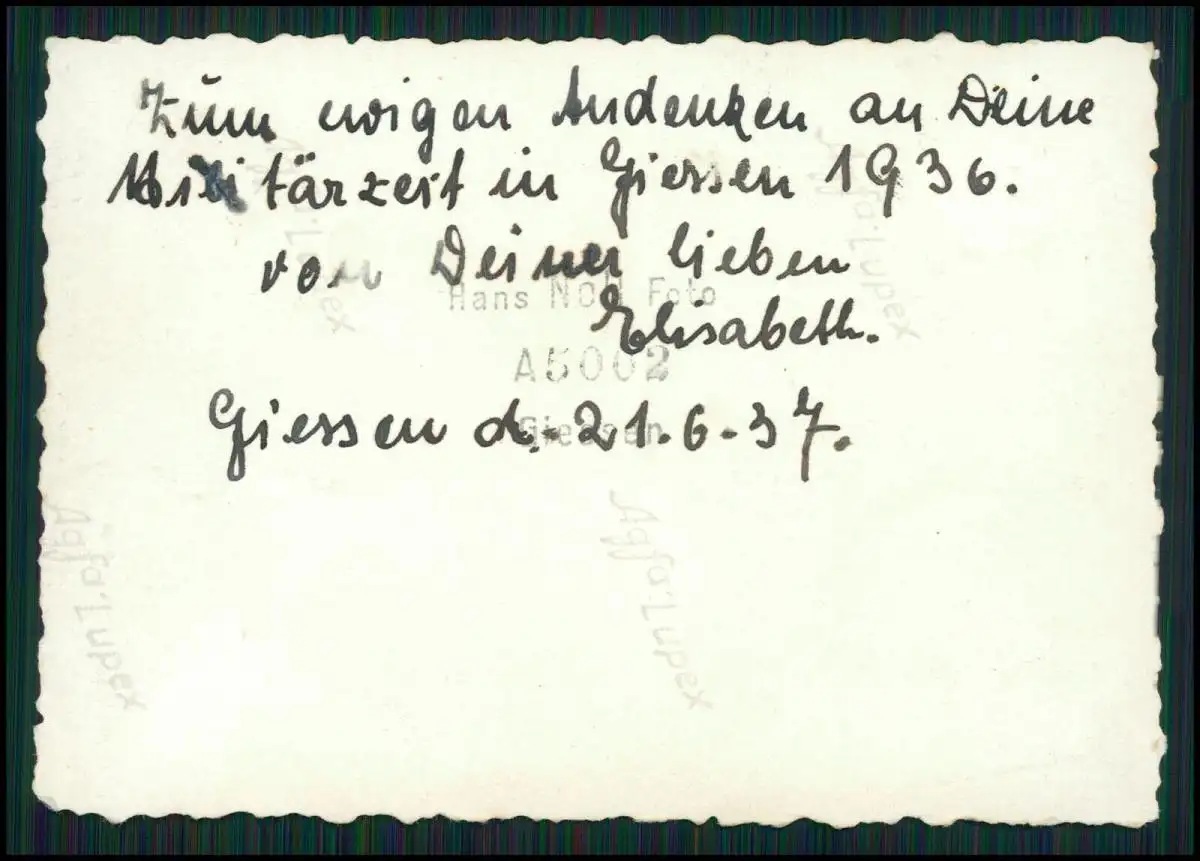 Zum ewigen Andenken an Deine
Militärzeit in Giessen 1936.
von Deiner lieben
Hans NOLL Foto
Elisabeth.
A5002
Giessen d. 21.6.37.
Giessen
Agfa-Lupex
Agfa-Lupex
Agfa-Lupex
Agfa-Lupex